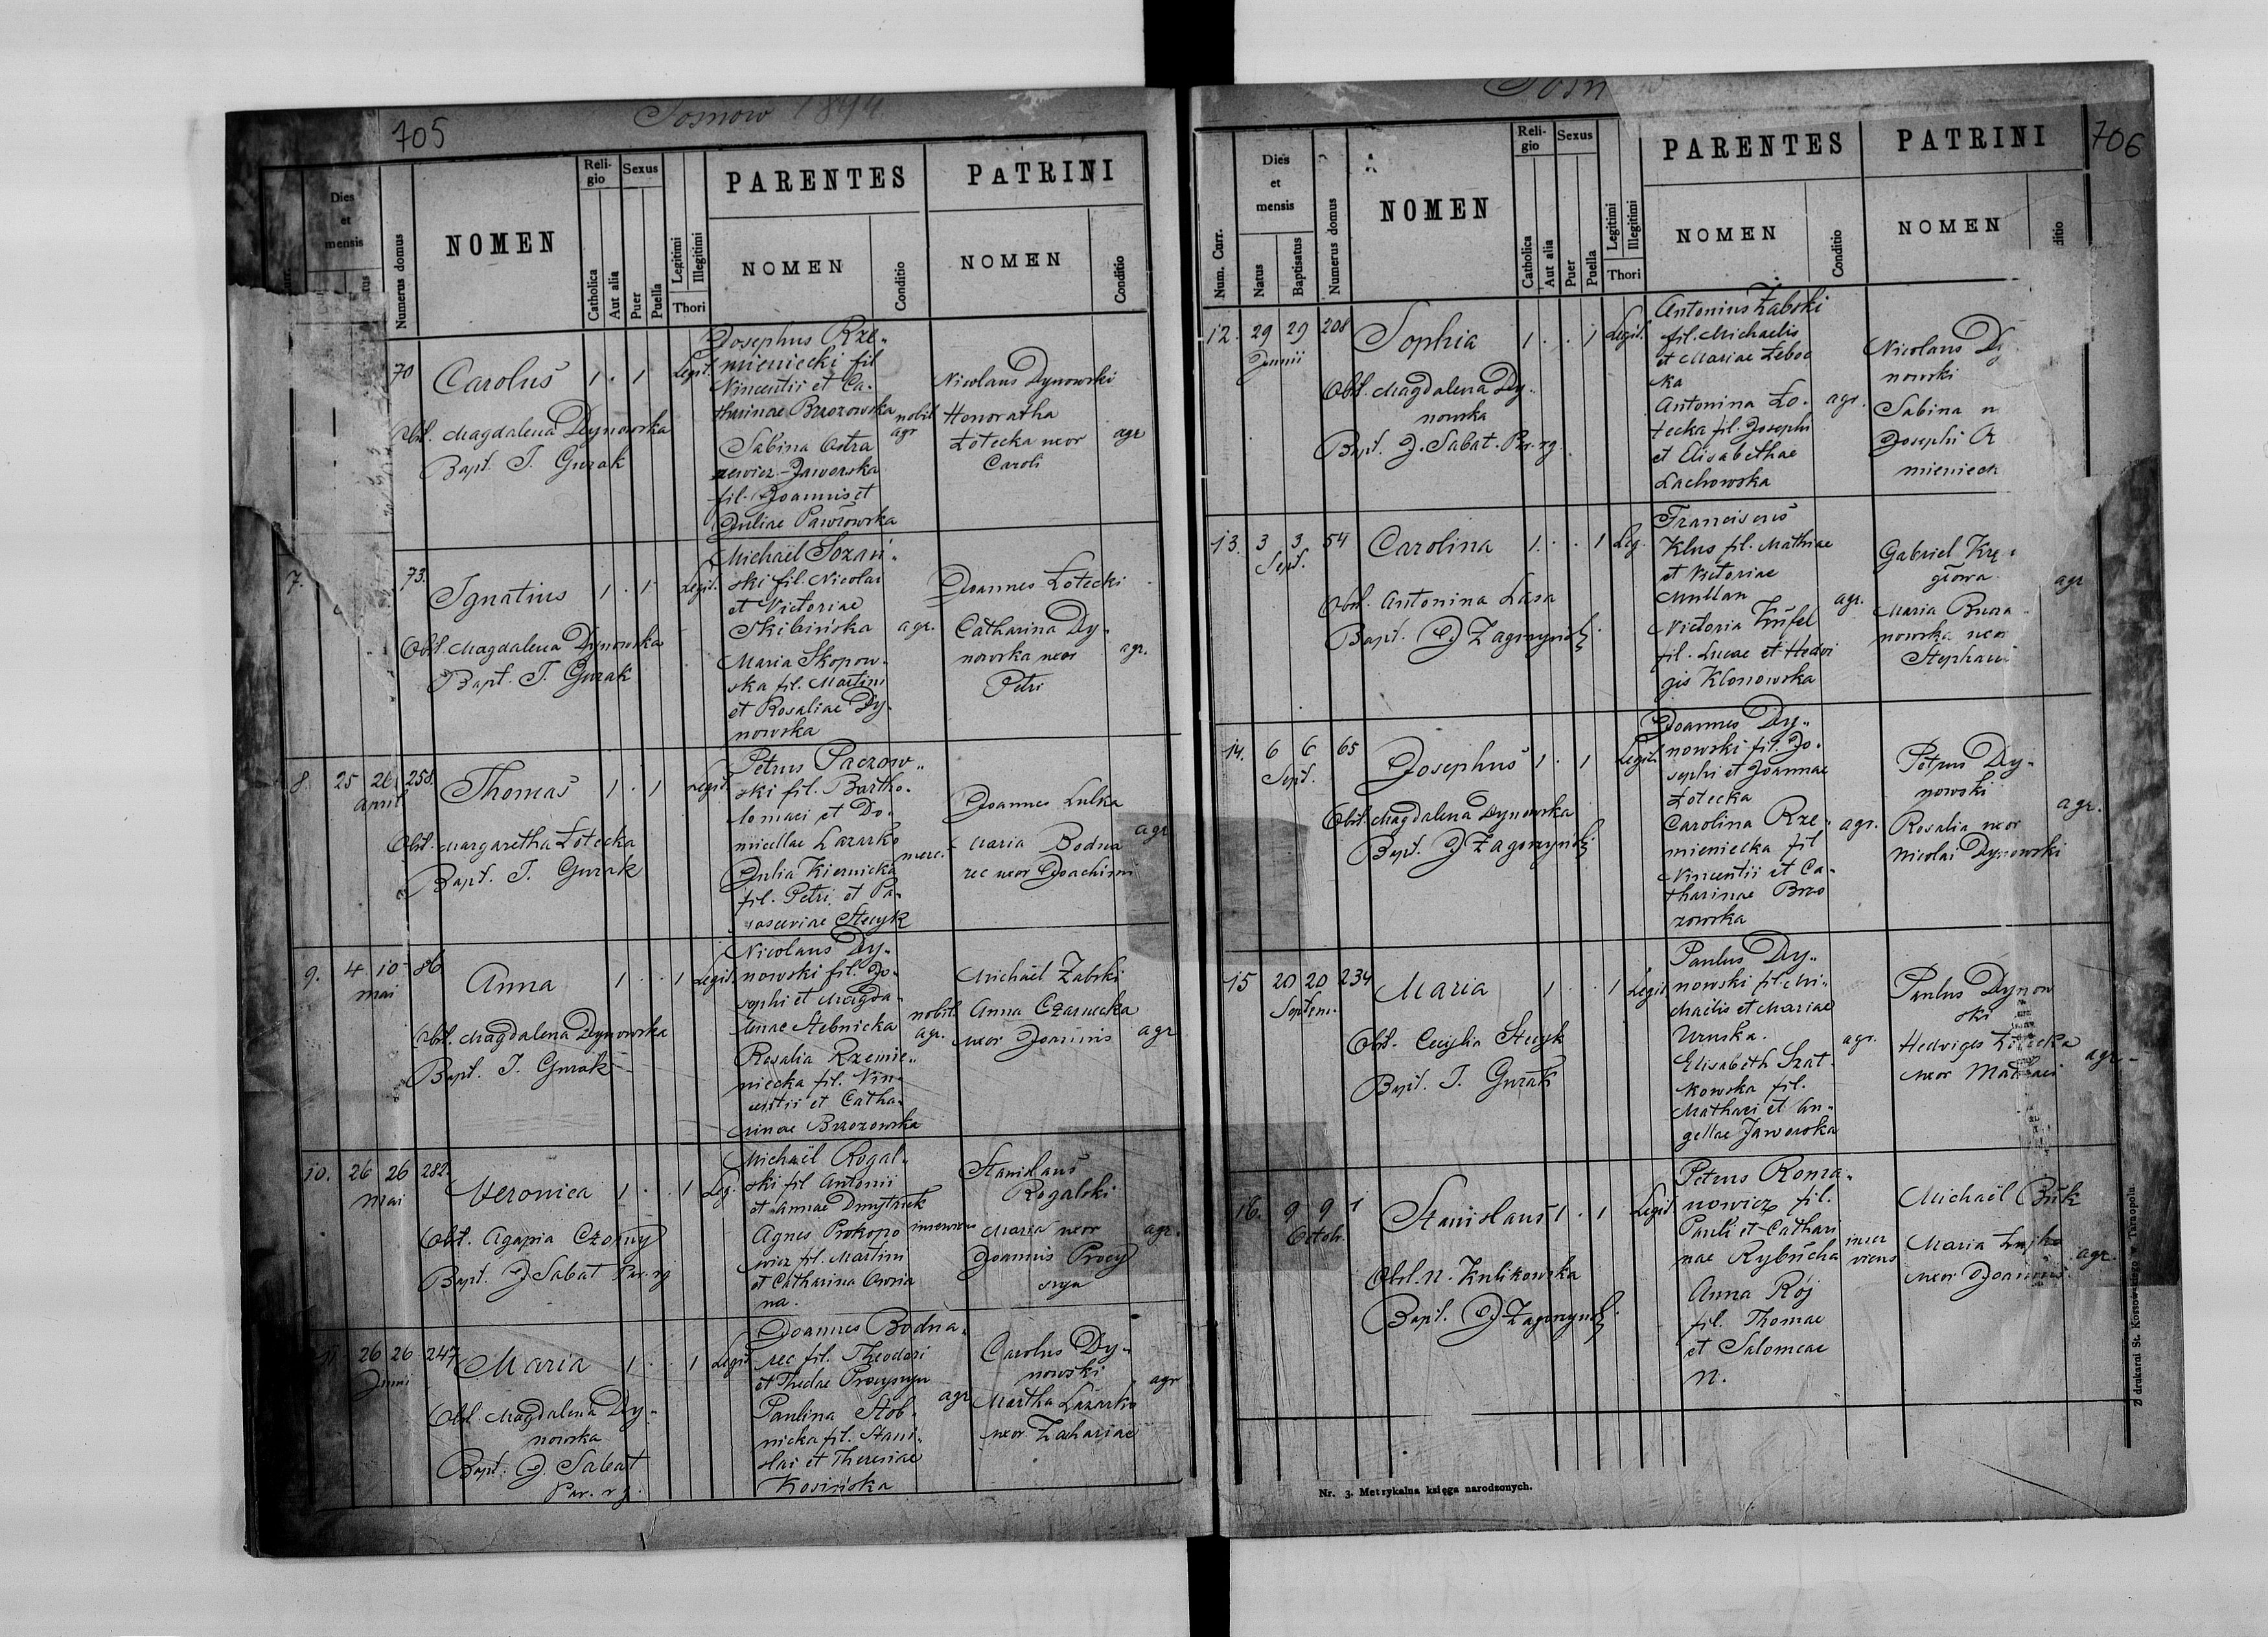 705
Sosnow 1894
Dies et mensis
Numerus domus
NOMEN
Religio
Catholica
Aut alia
Sexus
Puer
Puella
Legitimi
Illegitimi
Thori
PARENTES
NOMEN
Conditio
PATRINI
NOMEN
Conditio
70 Carolus 1 . 1 Legit.
Obst. Magdalena Dynowska
Bapt. T. Gurak
Josephus Rze„
mieniecki fil
Vincentii et Ca„
tharinae Brzozowska
nobil
agr
Sabina Ostra
zewicz-Jaworska
fil. Joannis et
Juliae Pawłowska
Nicolaus Dynowski
Honoratha
Łotecka uxor
Caroli
agr
7. 73. Ignatius 1 . 1 Legit.
Obst. Magdalena Dynowska
Bapt. T. Gurak
Michaël Sozań„
ski fil. Nicolai
et Victoriae
Skibińska
agr.
Maria Skopow„
ska fil. Martini
et Rosaliae Dy„
nowska
Joannes Łotecki
Catharina Dy„
nowska uxor
Petri
agr.
8. 25 26 258. Thomas 1 . 1 Legit.
April
Obst. Margaretha Łotecka
Bapt. T. Gurak
Petrus Paczow„
ski fil. Bartho„
lomaei et Do„
micellae Lazarko
merc.
Julia Kiernicka
fil. Petri et Pa„
rasceviae Stecyk
Joannes Lulka
Maria Bodna
rec uxor Joachimi
agr
9. 4 10 86 Anna 1 . . 1 Legit.
Mai
Obst. Magdalena Dynowska
Bapt. T. Gurak
Nicolaus Dy„
nowski fil. Jo„
sephi et Magda„
lenae Stebnicka
nobil.
agr.
Rosalia Rzemie„
niecka fil. Vin„
centii et Catha„
rinae Brzozowska
Michaël Żabski
Anna Czarnecka
uxor Joannis
agr
10. 26 26 282. Veronica 1 . . 1 Leg.
Mai
Obst. Agapia Czorny
Bapt. J Sabat Par. rg
Michaël Rogal„
ski fil Antonii
et Annae Dmytruk
Agnes Prokopo
wicz fil. Martini
et Catharina
na.
Stanislaus
Rogalski
Maria uxor
Joannis Procy
szyn
agr.
11 26 26 247 Maria 1 . . 1 Legit.
Junii
Obst. Magdalena Dy„
nowska
Bapt. J. Sabat
Par. rg.
Joannes Bodna„
rec fil. Theodori
et Theclae Procyszyn
agr
Paulina Stob„
nicka fil. Stani„
slai et Theresiae
Kosińska
Carolus Dy„
nowski
Martha Lazarko
uxor Zachariae
agr
706
Sosn
Num. Curr.
Dies et mensis
Natus
Baptisatus
Numerus domus
NOMEN
Religio
Catholica
Aut alia
Sexus
Puer
Puella
Legitimi
Illegitimi
Thori
PARENTES
NOMEN
Conditio
PATRINI
NOMEN
ditio
12. 29 29 208 Sophia 1 . . 1 Legit.
Junii
Obst. Magdalena Dy„
nowska
Bapt. J. Sabat. Par. rg
Antonius Żabski
fil. Michaelis
et Mariae Łeboc
ka
Antonina Ło„
tecka fil. Josephi
et Elisabethae
Lachowska
agr.
Nicolaus Dy
nowski
Sabina u
Josephi R
mienieck
13. 3 3 54 Carolina 1 . . 1 Leg.
Sept.
Obst. Antonina Lasa
Bapt. J Zagorzyński
Franciscus
Klus fil. Mathiae
et Victoriae
Mullan
agr.
Victoria Kufel
fil. Lucae et Hedvi
gis Klonowska
Gabriel Krę
głowa
Maria Bura
nowska uxor
Stephani
agr
14. 6 6 65 Josephus 1 . 1 Legit.
Sept.
Obst. Magdalena Dynowska
Bapt. J Zagorzyński
Joannes Dy„
nowski fil. Jo„
sephi et Joannae
Łotecka
Carolina Rze„
mieniecka fil
Vincentii et Ca„
tharinae Brzo
zowska
agr.
Petrus Dy„
nowski
Rosalia uxor
Nicolai Dynowski
agr.
15 20 20 234 Maria 1 . . 1 Legit
Septem.
Obst. Cecylia Stecyk
Bapt. T. Gurak
Paulus Dy„
nowski fil. Mi„
chaelis et Mariae
Uruska.
agr.
Elisabeth Szat„
kowska fil.
Mathaei et An„
gellae Jaworska
Paulus Dynow
ski
Hedviges Łotecka
uxor Mathaei
agr
16. 9 9 1 Stanislaus 1 . 1 Legit
Octob.
Obst. N. Kulikowska
Bapt. J Zagorzyński
Petrus Roma„
nowicz fil.
Pauli et Cathari
nae Rybucha
inser
viens
Anna Rój
fil. Thomae
et Salomeae
N.
Michaël Buk
Maria
uxor Joannis
agr.
Nr. 3. Metrykalna księga narodzonych.
Z drukarni St. Kossowskiego w Tarnopolu.